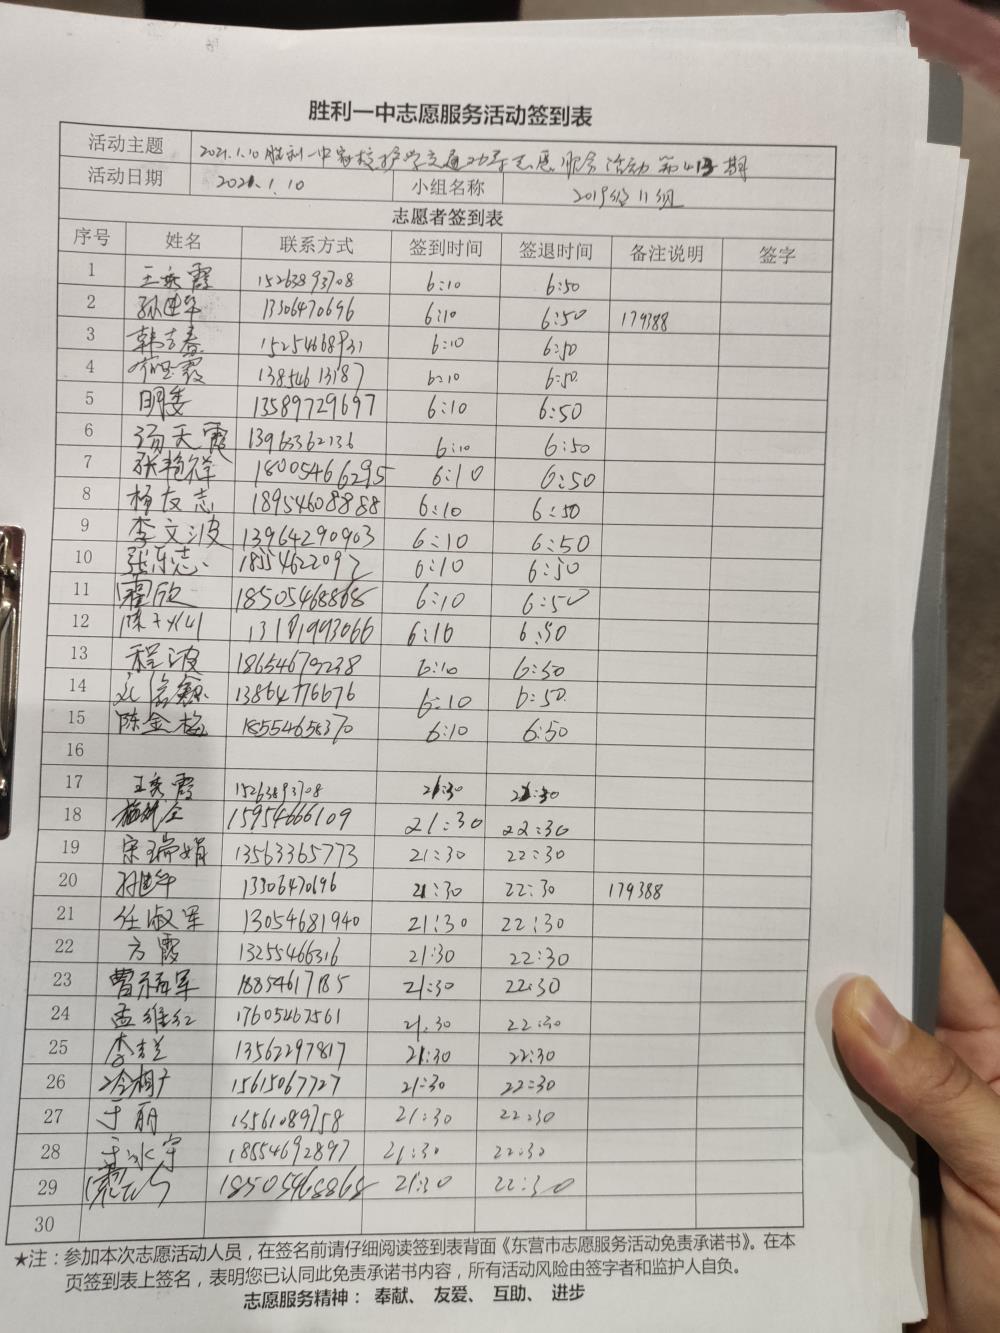 胜利一中志愿服务活动签到表
活动主题 2021.1.10胜利一中家校护学交通劝导志愿服务活动第413期
活动日期 2021.1.10 小组名称 2019级11组
志愿者签到表
序号 姓名 联系方式 签到时间 签退时间 备注说明 签字
1 王秀霞 15263893708 6:10 6:50
2 孙建华 13306470696 6:10 6:50 179388
3 韩吉春 15254668931 6:10 6:50
4 13854613187 6:10 6:50.
5 明霞 13589729697 6:10 6:50
6 杨天霞 13963362136 6:10 6:50
7 张艳祥 18005466295 6:10 6:50
8 杨友志 18954608888 6:10 6:50
9 李文波 13964290903 6:10 6:50
10 张乐志 18554622092 6:10 6:50
11 霍欣 18505468868 6:10 6:50
12 13181993066 6:10 6:50
13 程波 18654679238 6:10 6:50
14 13864776676 6:10 6:50.
15 陈金梅 18554658370 6:10 6:50
16
17 王秀霞 15263893708 21:30 22:30
18 15954666109 21:30 22:30
19 宋瑞娟 13563365773 21:30 22:30
20 孙建华 13306470696 21:30 22:30 179388
21 任淑军 13054681940 21:30 22:30
22 方霞 13255466316 21:30 22:30
23 曹福军 18854617185 21:30 22:30
24 孟维红 17605467561 21.30 22:30
25 李兰 13562297817 21:30 22:30
26 15615067727 21:30 22:30
27 于丽 13561089758 21:30 22:30
28 于冰宇 18554692897 21:30 22:30
29 18505468868 21:30 22:30
30
★注：参加本次志愿活动人员，在签名前请仔细阅读签到表背面《东营市志愿服务活动免责承诺书》。在本
页签到表上签名，表明您已认同此免责承诺书内容，所有活动风险由签字者和监护人自负。
志愿服务精神： 奉献、 友爱、 互助、 进步